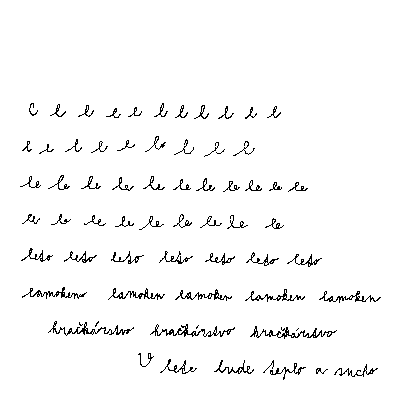 le le le le le le le le le le le
le le le le le le le le le
leto leto leto leto leto leto leto
lamoken lamoken lamoken lamoken lamoken
hračkárstvo hračkárstvo hračkárstvo
V lete bude teplo a sucho